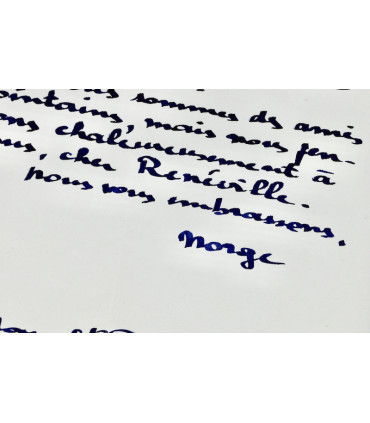 sommes ds amis
ointains, mais nous pen-
ons chaleureusement à
ous, cher Renéville.
nous vous embrassons,
Norge